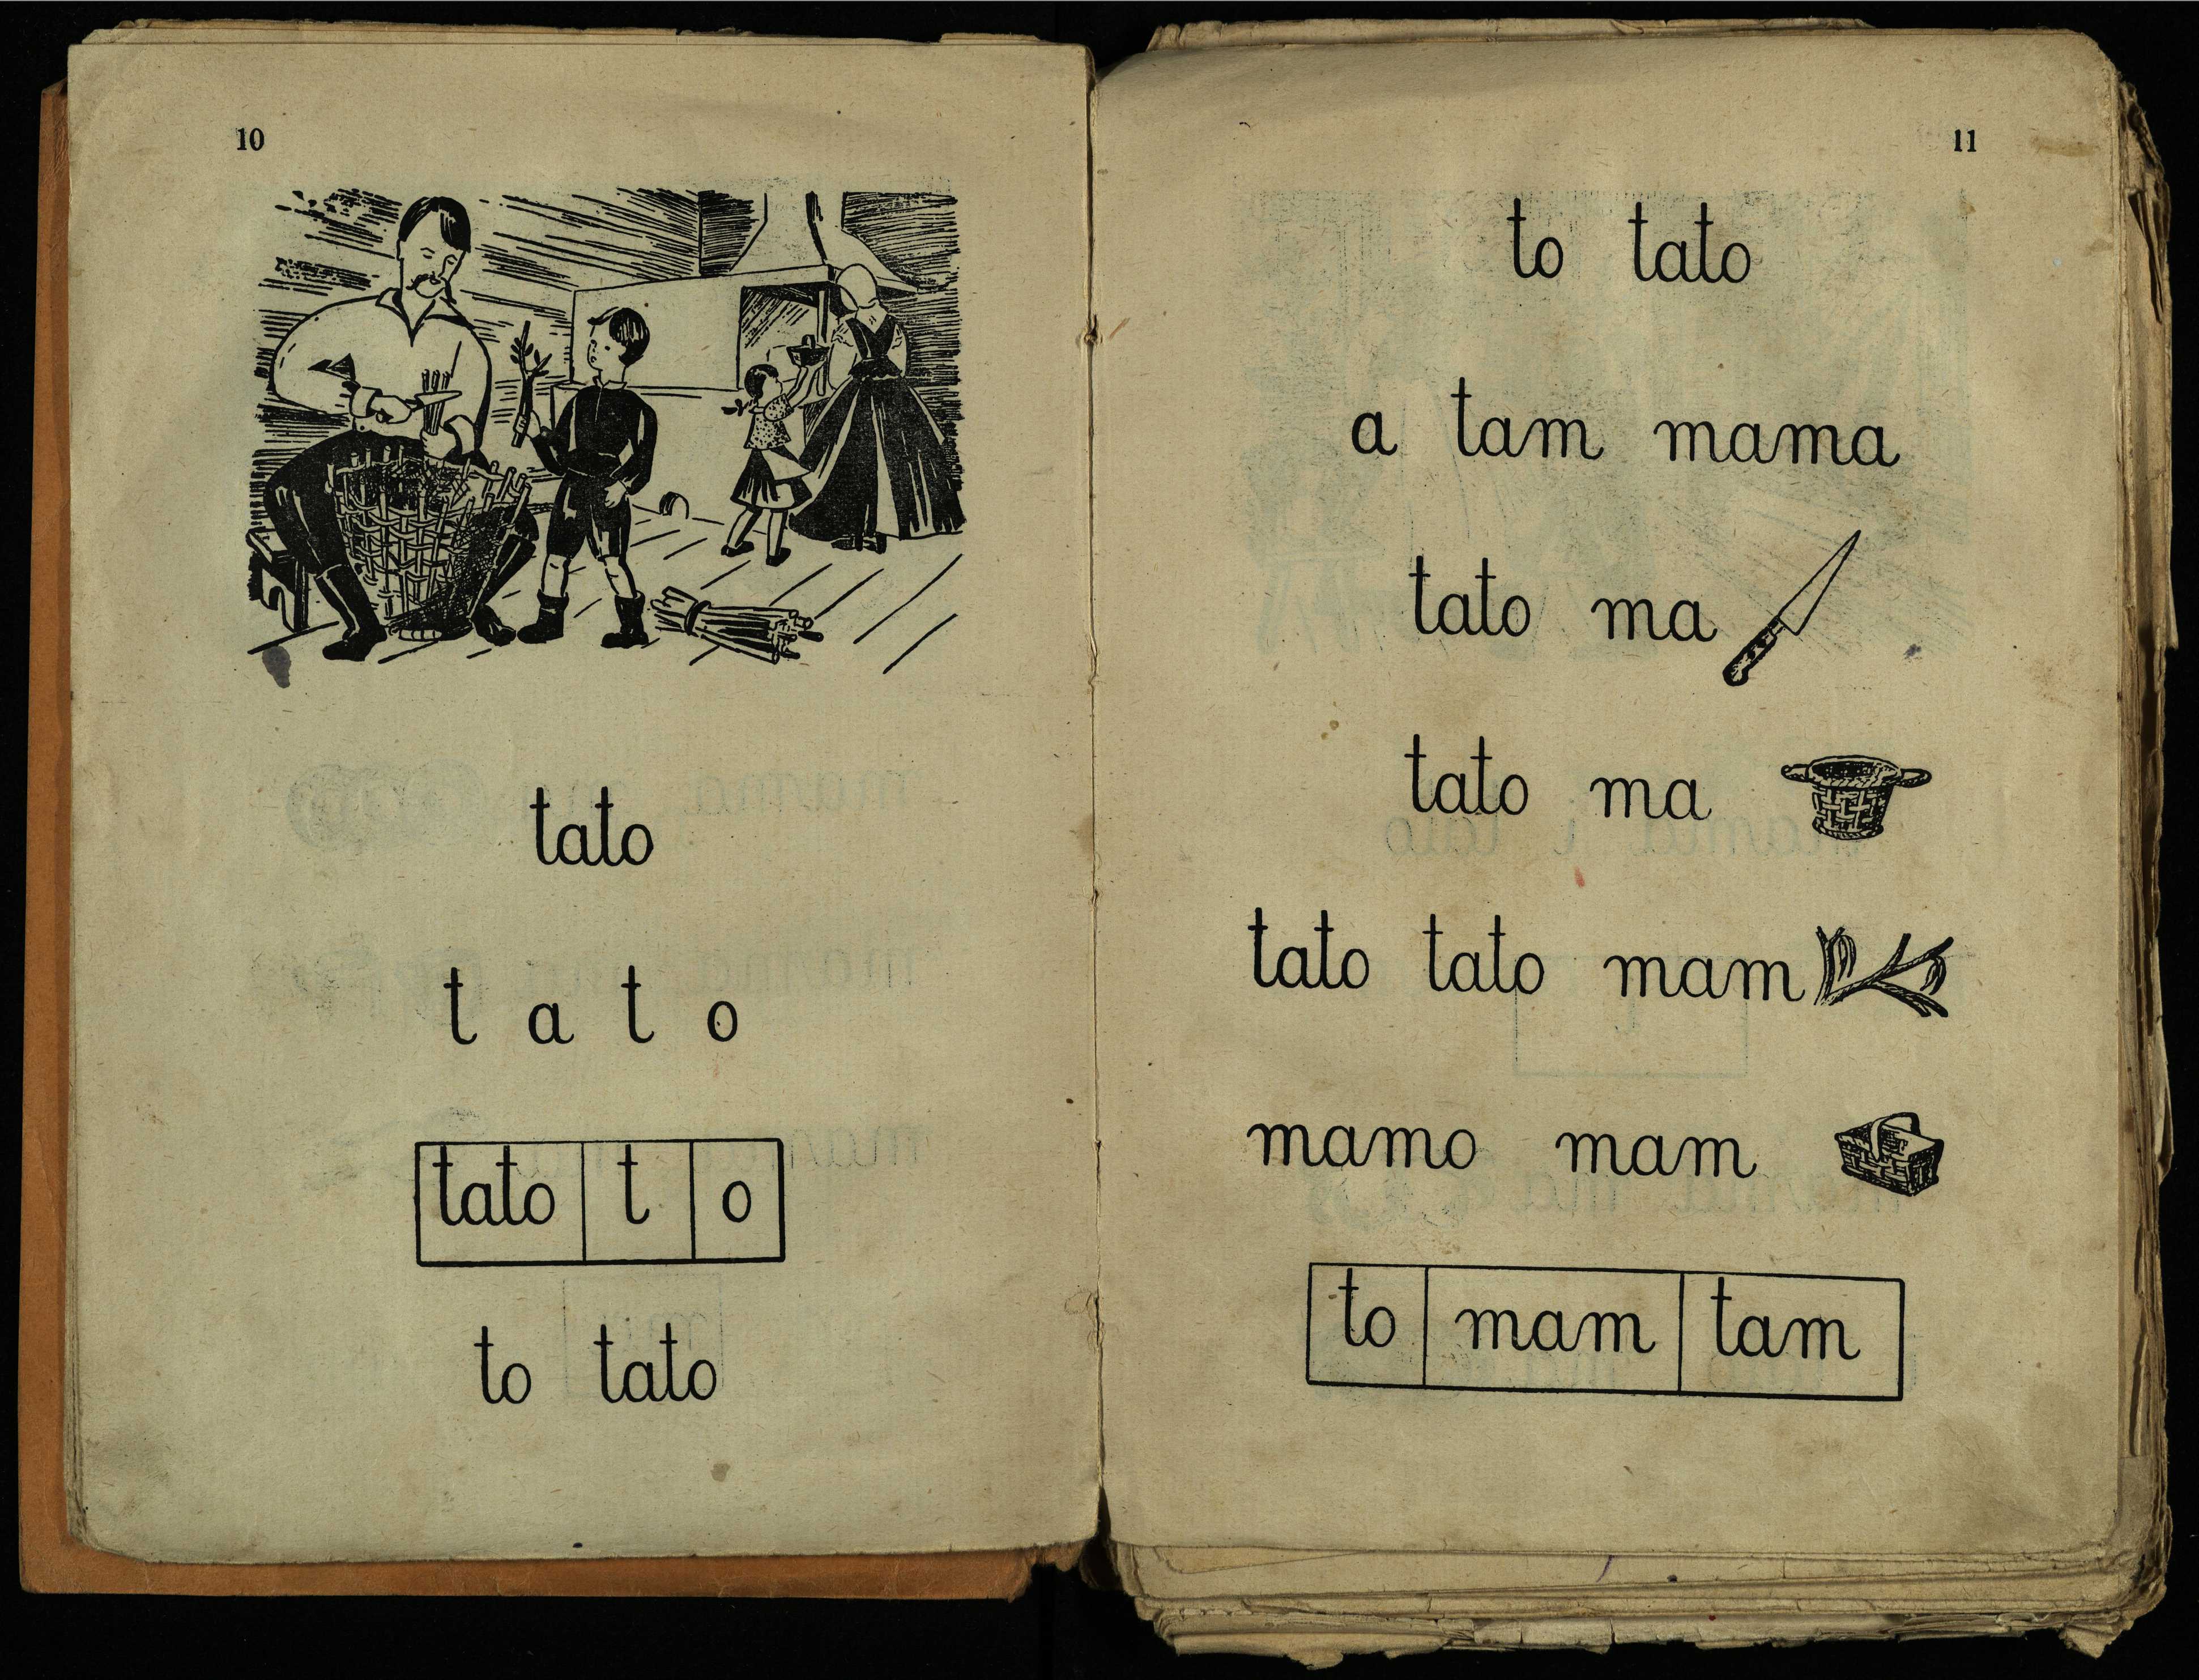 10
tato
t a t o
tato t o
to tato
11
to tato
a tam mama
tato ma
tato ma
tato tato mam
mamo mam
to mam tam